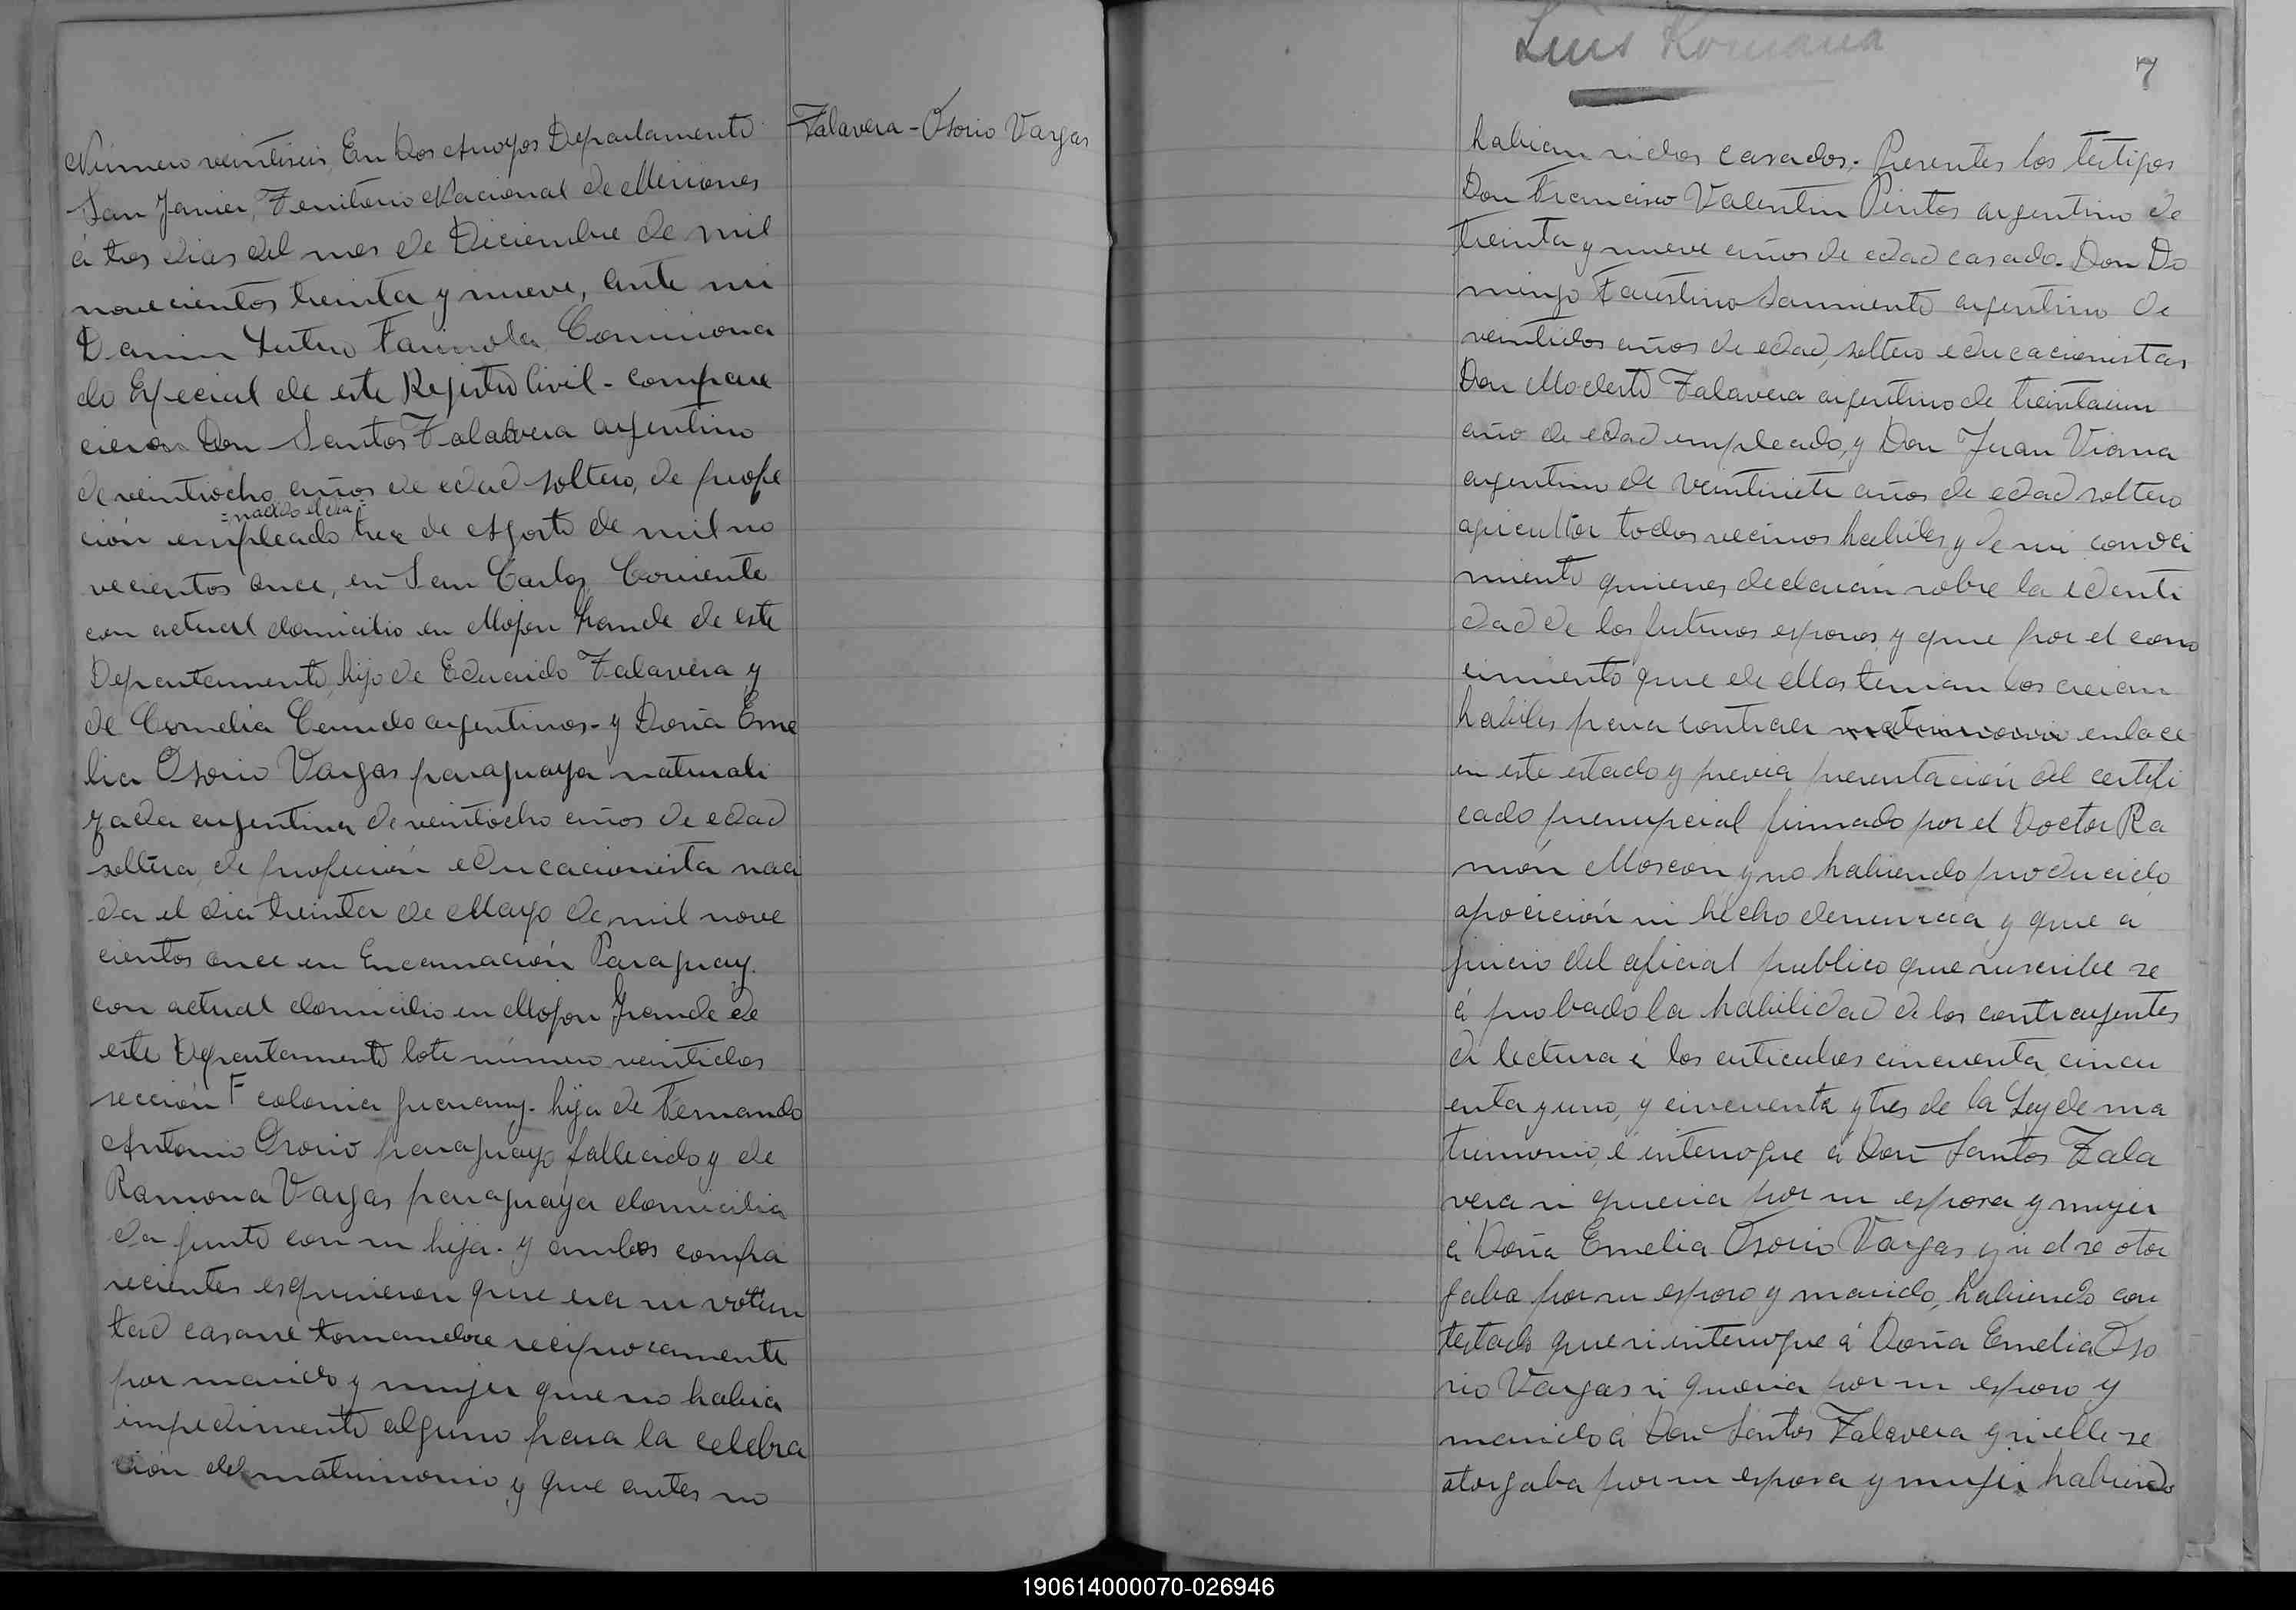 Número veintiseis, En Dos Arroyos Departamento
San Javier, Territorio Nacional de Misiones
á tres dias del mes de Diciembre de mil
novecientos treinta y nueve, ante mi
Comisiona
do Especial de este Registro Civil - compare
cieron Don Santos Talavera argentino
de veintiocho años de edad soltero, de profe
=nacido el dia=
ción empleado tres de Agosto de mil no
vecientos once, en San Carlos, Corriente
con actual domicilio en Mojon Grande de este
Departamento, hijo de Eduardo Talavera y
de Cornelia argentinos - y Doña Eme
lia Osorio Vargas paraguaya naturali
zada argentina de veintiocho años de edad
soltera, de profeción educacionista naci
da el dia treinta de Mayo de mil nove
cientos once en Encarnación Paraguay.
con actual domicilio en Mojon Grande de
este Departamento lote número veintidos
sección F colonia guarany - hija de Fernando
Antonio Osorio paraguayo fallecido y de
Ramona Vargas paraguaya domicilia
da junto con su hija - y ambos compa
recientes esquisieron que era su volun
tad casarse tomandose reciprocamente
por marido y mujer que no habia
impedimento alguno para la celebra
ción del matrimonio y que antes no
Talavera - Osorio Vargas
Luis Romana
7
habian sidos casados. Presentes los testigos
Don Francisco Valentin Pintos argentino de
treinta y nueve años de edad casado. Don Do
mingo Faustino Sarmiento argentino de
veintidos años de edad, soltero educacionistas
Don Modesto Talavera argentino de treintaiun
año de edad empleado, y Don Juan Viana
argentino de veintisiete años de edad soltero
agricultor todos vecinos habiles, y de mi conoci
miento quienes declarán sobre la identi
dad de los futuros esposos, y que por el cono
cimiento que de ellos tenian los creian
habiles para contraer matrimonio enlace
en este estado y previa presentación del certifi
cado prenupcial firmado por el Doctor Ra
món Moscon y no habiendo producido
oposición ni hecho denuncia y que a
juicio del oficial publico que suscribe se
á probado la habilidad de los contrayentes
di lectura á los articulos cincuenta, cincu
enta y uno, y cincuenta y tres de la Ley de ma
trimonio, é interrogue á Don Santos Tala
vera si queria por su esposa y mujer
á Doña Emelia Osorio Vargas y si el se otor
gaba por su esposo y marido, habiendo con
testado que si interrogue á Doña Emelia Oso
rio Vargas si queria por su esposo y
marido á Don Santos Talavera y si ella se
otorgaba por su esposa y mujer habiendo
190614000070-026946